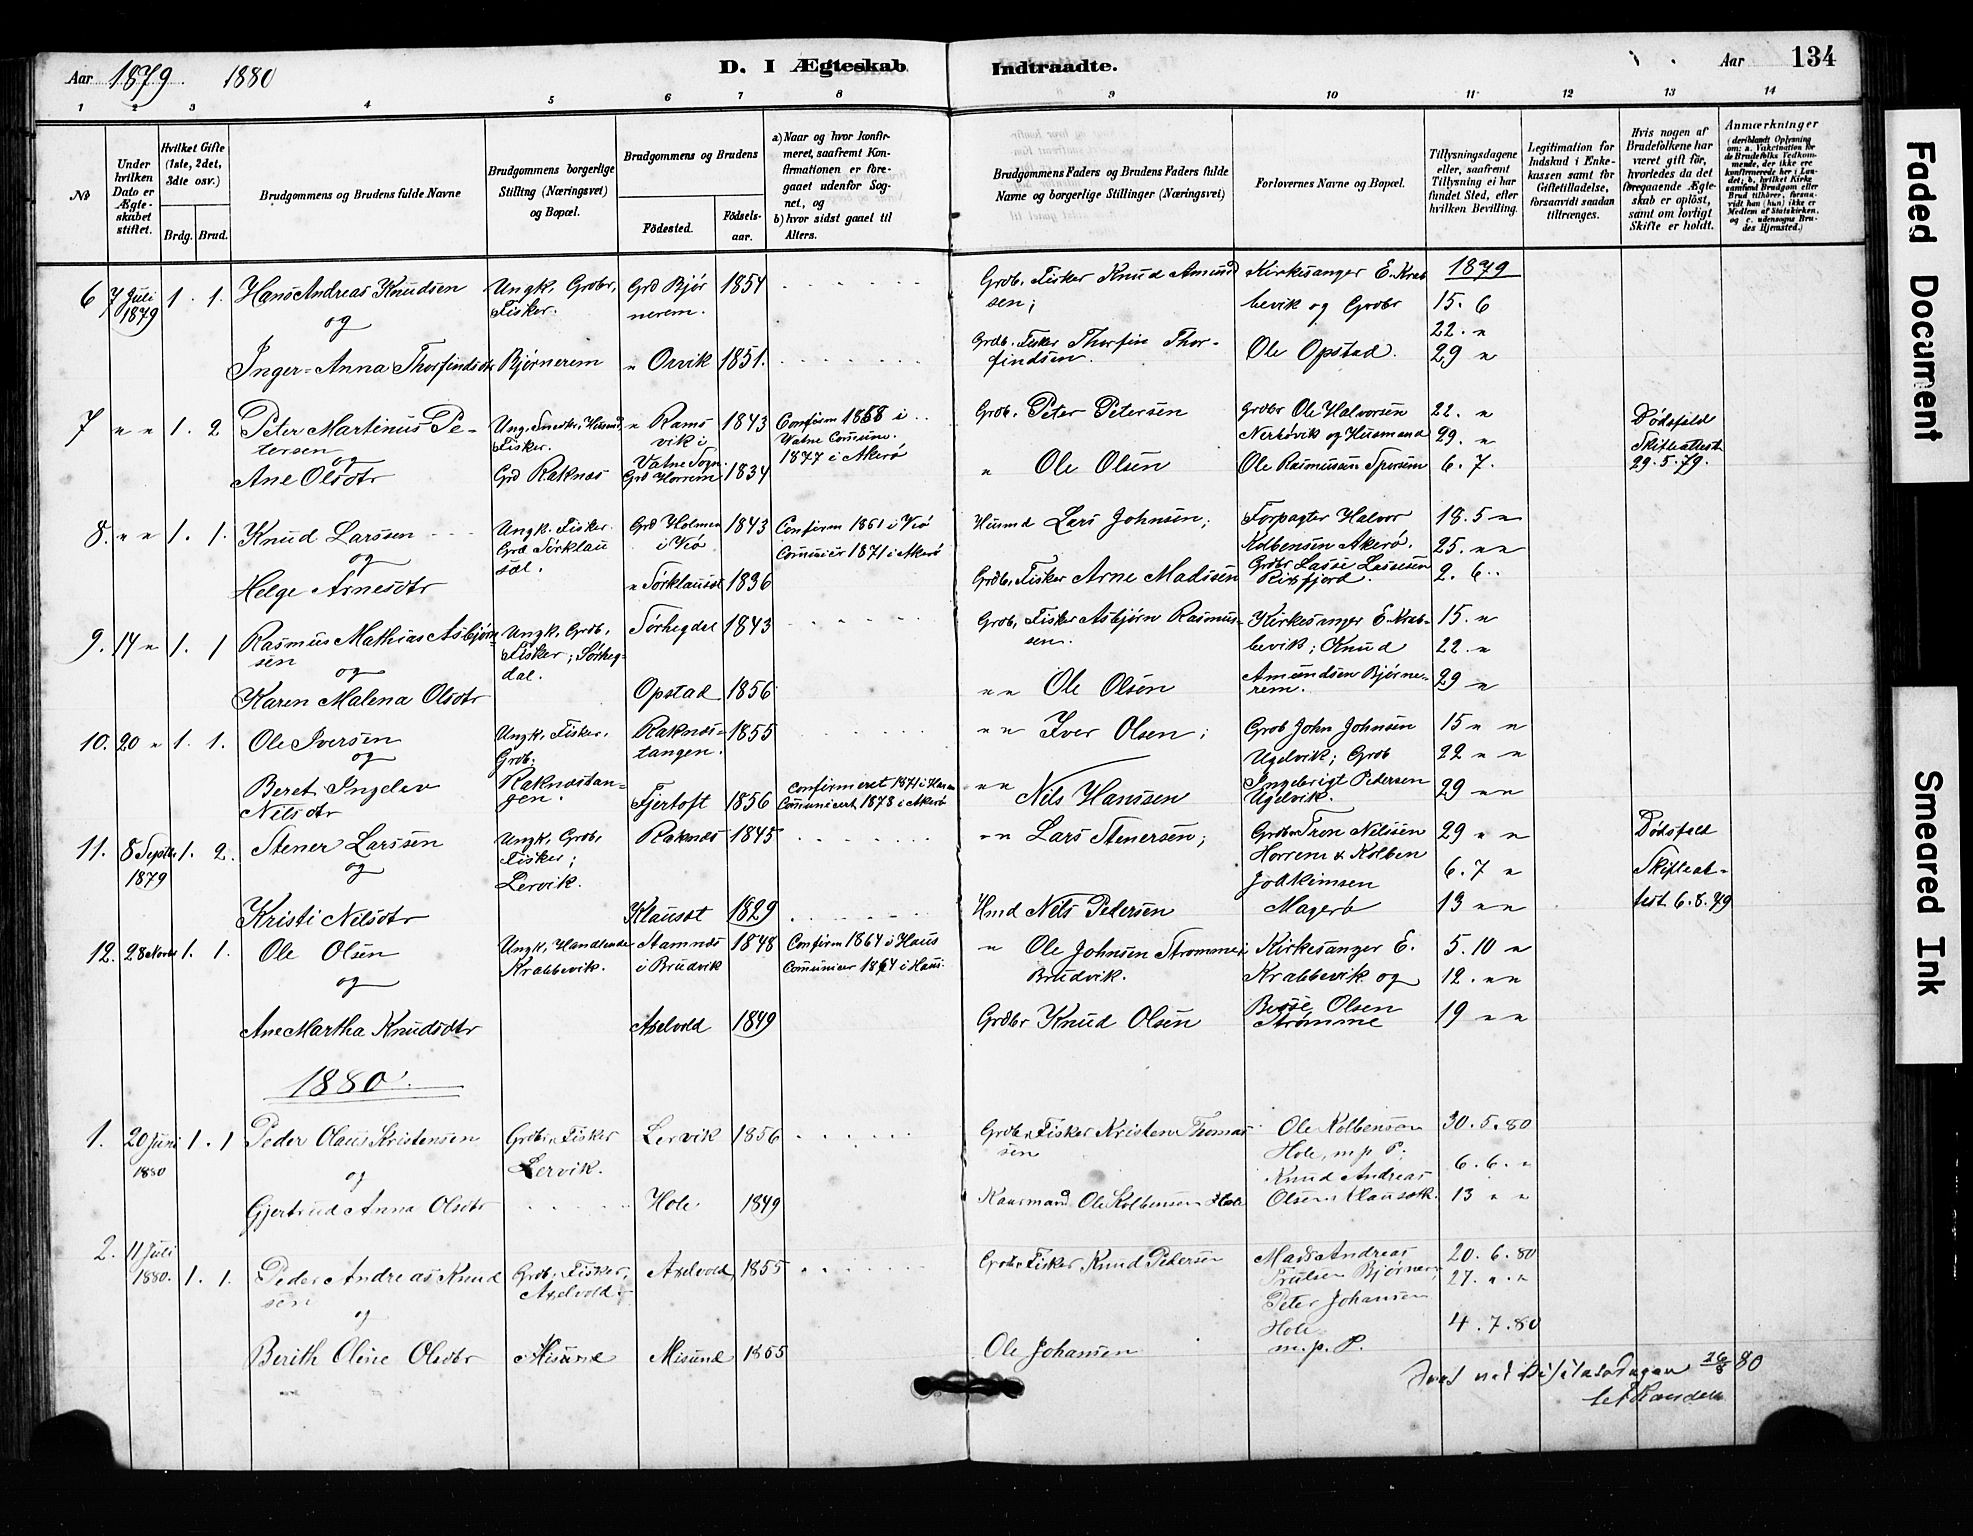 Aar 1879. 1880
D. I Ægteskab Indtraadte.
Aar 134
1 2 3 4 5 6 7 8 9 10 11 12 13 14
No
Under hvilken Dato er Ægteskabet stiftet.
Hvilket Gifte (1ste, 2det, 3die osv.)
Brdg. Brud.
Brudgommens og Brudens fulde Navne
Brudgommens borgerlige Stilling (Næringsvei) og Bopæl.
Brudgommens og Brudens
Födested.
Födselsaar.
a) Naar og hvor konfirmeret, saafremt Konfirmationen er foregaaet udenfor Sognet, og
b) hvor sidst gaaet til Alters.
Brudgommens Faders og Brudens Faders fulde Navne og borgerlige Stillinger (Næringsvei)
Forlovernes Navne og Bopæl.
Tillysningsdagene eller, saafremt Tillysning ei har fundet Sted, efter hvilken Bevilling.
Legitimation for Indskud i Enkekassen samt for Giftetilladelse, forsaavidt saadan tiltrænges.
Hvis nogen af Brudefolkene har været gift för, hvorledes da det foregaaende Ægteskab er oplöst, samt om lovligt Skifte er holdt.
Anmærkninger
6 7 Juli 1879 1. 1. Hans Andreas Knudsen Ungk. Grdbr, Fisker. Grd Bjørnerem. 1854 Grdb. Fisker Knud Amundsen; Kirkesanger E. Krabbevik og Grdbr 1879 15. 6
og 22. "
Inger-Anna Thorfindsdtr Bjørnerem " Orvik 1851. Grdb. Fisker Thorfin Thorfindsen. Ole Opstad. 29 "
7 " " 1. 2 Peter Martinus Petersen Ung. Husmd Fisker. " Ramsvik i Vatne Sogn. 1843 Confirm 1868 i Vatne Comun. 1877 i Akerö Grdb. Peter Petersen Grdbr Ole Halvorsen Nerbövik og Husmand 22. " 29. " Dødsfald Skifteattest 29.5.79.
og
Ane Olsdtr Grd Raknæs Grd Horrem 1834 " Ole Olsen Ole Rasmussen 6. 7.
8. " " 1. 1. Knud Larssen Ungk. Fisker Grd Sørklausæt. Grd Holmen i Veö 1843 Confirm 1861 i Veö Comunicer 1871 i Akerö Husmd Lars Johnsen; Forpagter Halvor Kolbensen Akerö. 18. 5 " 25. " "
og
Helge Arnesdtr " Sørklausæt 1836 Grdb. Fisker Arne Madssen Grdbr Lasse Lassesen Rixfjord. 2. 6
9. 14 " 1. 1 Rasmus Mathias Asbjørnsen Ungk. Grdb. Fisker; Sørhegdal. Sørhegdal 1843 Grdb. Fisker Asbjørn Rasmussen. Kirkesanger E. Krabbevik; Knud 15. " 22. "
og
Karen Malena Olsdtr Opstad 1856 " " Ole Olsen Amundsen Bjørnerem. 29 "
10. 20 " 1. 1. Ole Iversen Ungk. Fisker, Grdb. Raknæstangen. 1855 " " Iver Olsen; Grdb John Johnsen Ugelvik; Grdb 15 " " 22 " "
og
Beret Ingelev Nilsdtr Raknæstangen. Fjertoft 1856 Confirmeret 1871 i Haram Comunicert 1878 i Akerö " " Nils Hanssen Ingebrigt Pedersen Ugelvik. 29 " "
11. 8 Septbr 1879 1. 2. Stener Larssen Ungk. Grdbr Fisker; Lervik. Raknæs 1845 " " Lars Stenersen; Grdbr Tron Nilssen Horrem & Kolben 29 " " 6. 7 " Dødsfald Skifteattest 6.8.79
og
Kristi Nilsdtr Klausæt 1829 Hmd Nils Pedersen Joakimsen Magerö 13 " "
12. 28 Novbr 1. 1. Ole Olsen Ungk. Handlende Krabbevik. Stamnæs i Brudvik 1848 Confirm 1864 i Haus Comunicer 1864 i Haus. " Ole Johnsen Strømme i Brudvik. Kirkesanger E. Krabbevik og 5. 10 " 12. " "
og
Ane Martha Knudsdtr Axelvold 1849 Grdbr Knud Olsen Olsen Strømme 19 " "
1880.
1. 20 Juni 1880 1. 1 Peder Olaus Kristensen Grdbr, Fisker Lervik. Lervik 1856 Grdbr. Fisker Kristen Thomassen Ole Kolbensen Hole, m.p.P. 30. 5. 80
og Knud Andreas 6. 6. "
Gjertrud Anna Olsdtr Hole 1849 Kaarmand Ole Kolbensen Hole Olsen Klausætk. 13 " "
2. 11 Juli 1880. 1. 1. Peder Andreas Knudsen Grdb. Fisker, Axelvold. Axelvold 1855 Grdbr. Fisker, Knud Pedersen Mads Andreas Trulsen Bjørnerem 20. 6. 80 27. " "
og Peter Johansen
Berith Oline Olsdtr Misund Misund 1855 Ole Johansen Hole. m.p.P. 4. 7. 80
Visitatsdagen 26/8 80
Faded Document
Smeared Ink